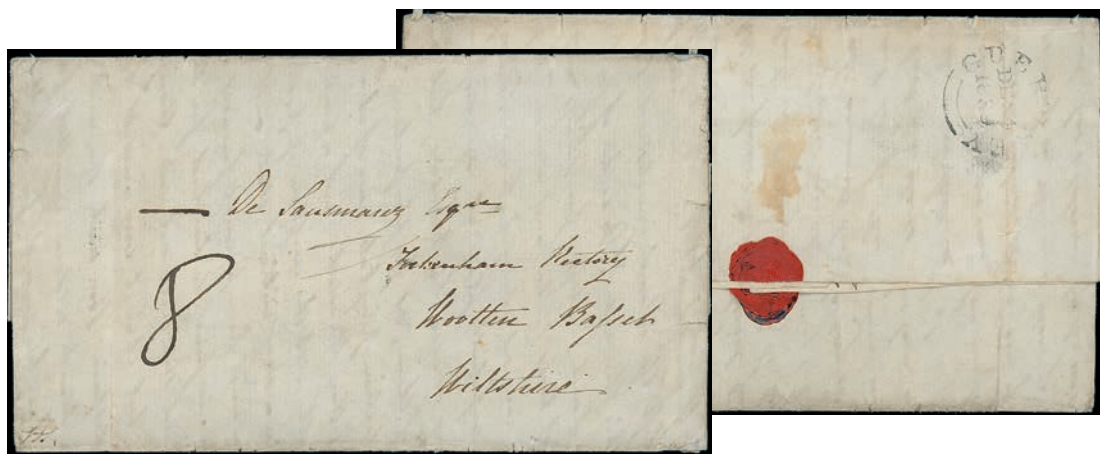 — De Sausmarez Esqre
8
Tockenham Rectory
Wootten Bassett
Wiltshire